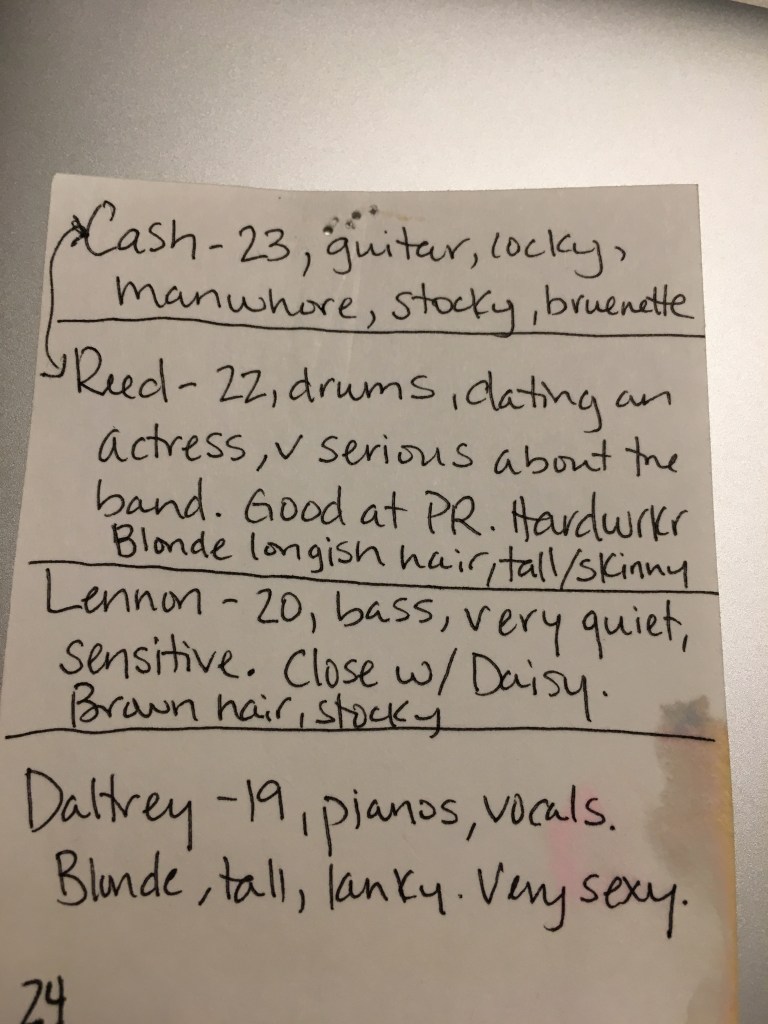 Cash - 23, guitar, cocky,
manwhore, stocky, bruenette
Reed - 22, drums, dating an
actress, v serious about the
band. Good at PR. Hardwrkr
Blonde longish hair, tall/skinny
Lennon - 20, bass, very quiet,
sensitive. Close w/ Daisy.
Brown hair, stocky
Daltrey - 19, pianos, vocals.
Blonde, tall, lanky. Very sexy.
24